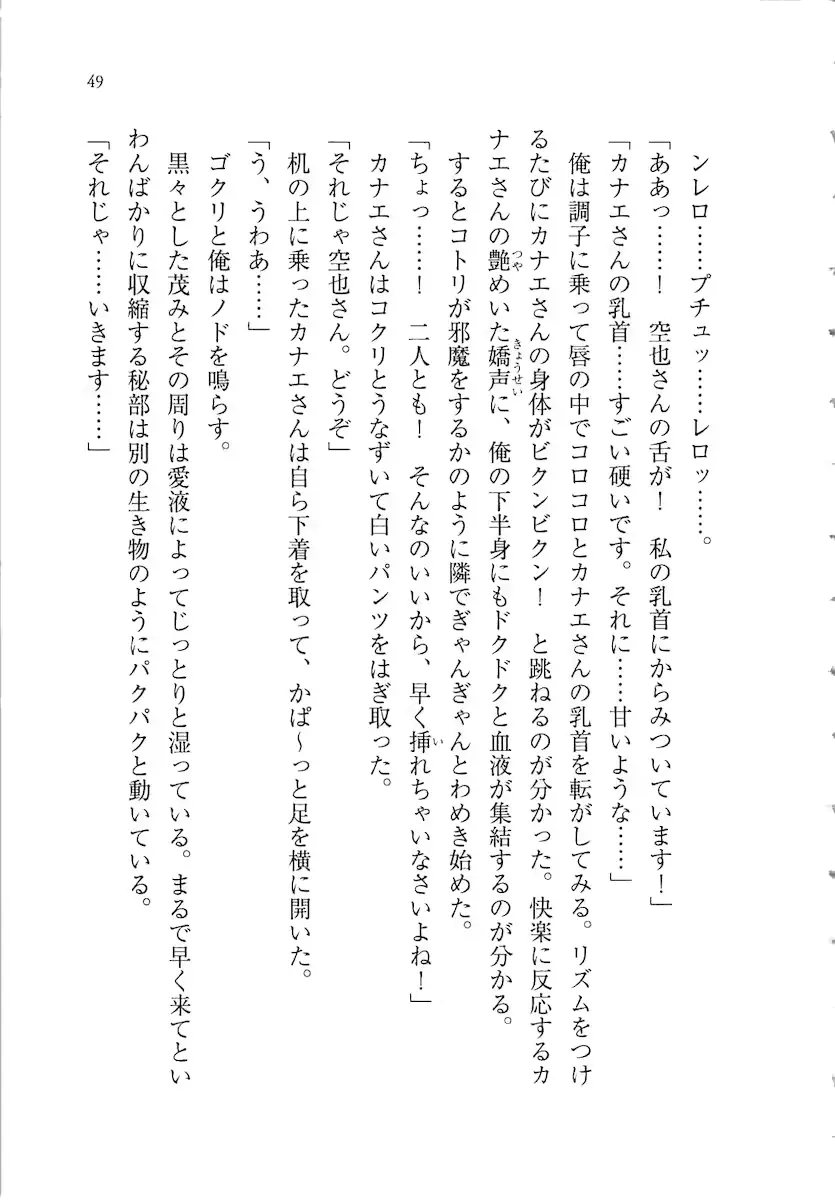 49
ンレロ……プチュッ……レロッ……。
「ああっ……！　空也さんの舌が！　私の乳首にからみついています！」
「カナエさんの乳首……すごい硬いです。それに……甘いような……」
俺は調子に乗って唇の中でコロコロとカナエさんの乳首を転がしてみる。リズムをつけ
るたびにカナエさんの身体がビクンビクン！　と跳ねるのが分かった。快楽に反応するカ
ナエさんの艶めいた嬌声に、俺の下半身にもドクドクと血液が集結するのが分かる。
つや
きょうせい
するとコトリが邪魔をするかのように隣でぎゃんぎゃんとわめき始めた。
「ちょっ……！　二人とも！　そんなのいいから、早く挿れちゃいなさいよね！」
い
カナエさんはコクリとうなずいて白いパンツをはぎ取った。
「それじゃ空也さん。どうぞ」
机の上に乗ったカナエさんは自ら下着を取って、かぱ～っと足を横に開いた。
「う、うわあ……」
ゴクリと俺はノドを鳴らす。
黒々とした茂みとその周りは愛液によってじっとりと湿っている。まるで早く来てとい
わんばかりに収縮する秘部は別の生き物のようにパクパクと動いている。
「それじゃ……いきます……」